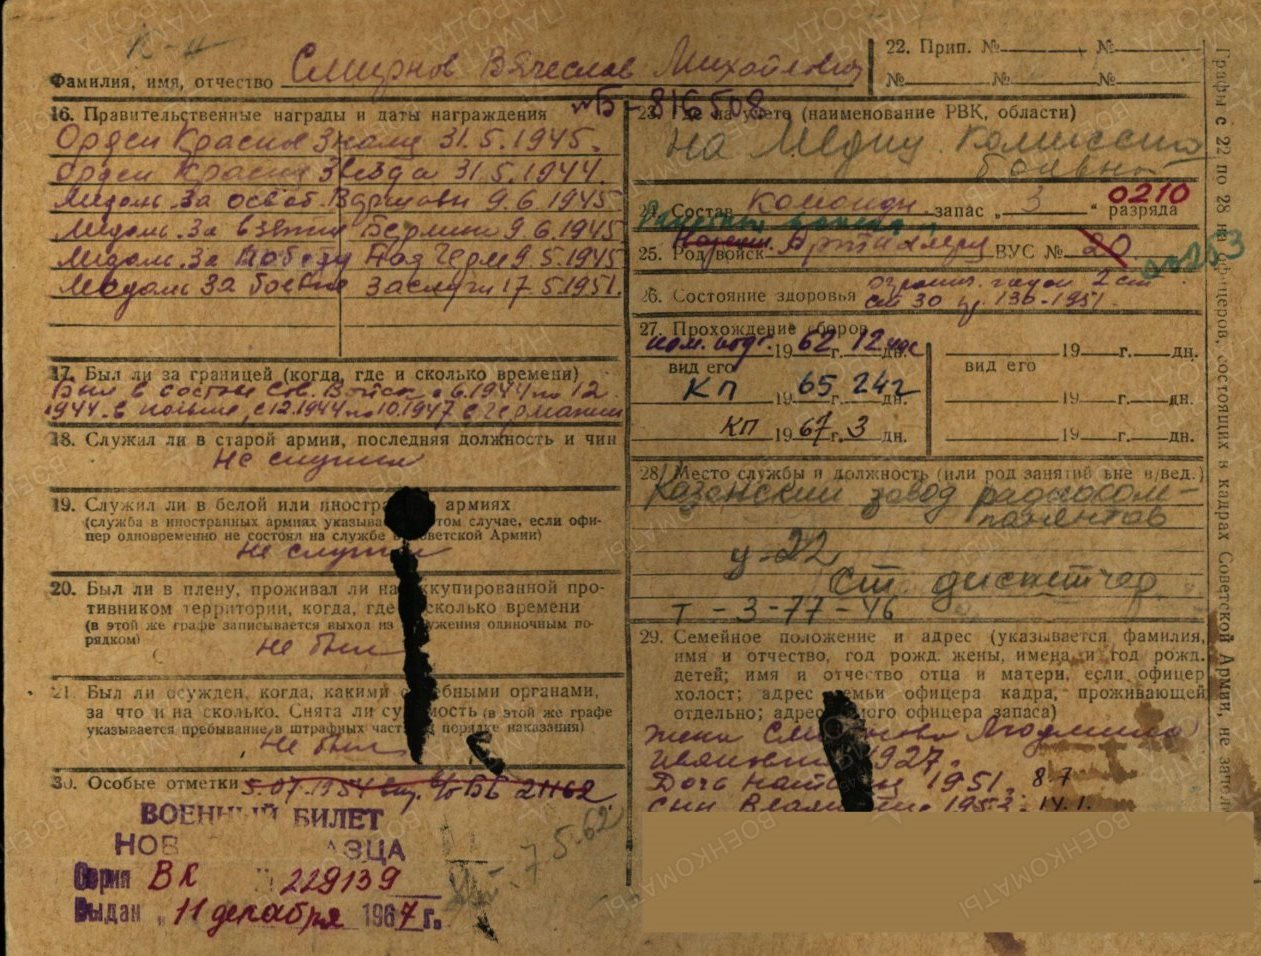 К-н
Фамилия, имя, отчество Смирнов Вячеслав Михайлович
22. Прип. № №
№ № №
16. Правительственные награды и даты награждения
№Б-816508
Орден Красное Знамя 31.5.1945.
Орден Красная Звезда 31.5.1944.
Медаль За освоб. Варшавы 9.6.1945
Медаль За взятие Берлина 9.6.1945
Медаль За Победу Над Герм 9.5.1945
Медаль За боевые заслуги 17.5.1951.
17. Был ли за границей (когда, где и сколько времени)
Был в составе Сов. Войск с 6.1944 по 12
1944 в польше, с 12.1944 по 10.1947 в Германии
18. Служил ли в старой армии, последняя должность и чин
Не служил
19. Служил ли в белой или иностра армиях
(служба в иностранных армиях указыва том случае, если офи-
цер одновременно не состоял на службе в Советской Армии)
Не служил
20. Был ли в плену, проживал ли на оккупированной про-
тивником территории, когда, где сколько времени
(в этой же графе записывается выход из окружения одиночным по-
рядком)
Не был
21. Был ли осужден, когда, какими судебными органами,
за что и на сколько. Снята ли судимость (в этой же графе
указывается пребывание в штрафных частях в порядке наказания)
Не был
30. Особые отметки 5.07.1954 ББ 21162
ВОЕННЫЙ БИЛЕТ
НОВ АЗЦА
Серия ВК № 229139
7.5.62
Выдан „11 декабря 1967 г.
23. Где на учете (наименование РВК, области)
На Медиц. Комиссию
больны
24. Состав командн запас „ 3 “ разряда
0210
25. Род войск Артиллерия ВУС № 20
26. Состояние здоровья огранич. годен 2 ст
ст 30 пр. 136-1951.
27. Прохождение сборов
19 62 г. 12 час дн. 19 г. дн.
вид его вид его
КП 19 65 г. 24 дн. 19 г. дн.
КП 19 67 г. 3 дн. 19 г. дн.
28. Место службы и должность (или род занятий вне в/вед.)
Казанский завод радиоком-
понентов
ц-22
Ст. диспетчер
Т-3-77-46
29. Семейное положение и адрес (указывается фамилия,
имя и отчество, год рожд. жены, имена и год рожд.
детей; имя и отчество отца и матери, если офицер
холост; адрес семьи офицера кадра, проживающей
отдельно; адрес самого офицера запаса)
Жена Смирнова Людмила
Ивановна 1927.
Дочь Наталия 1951. 8.7
Сын 1953. 14.1.
Графы с 22 по 28 на офицеров, состоящих в кадрах Советской Армии, не заполн